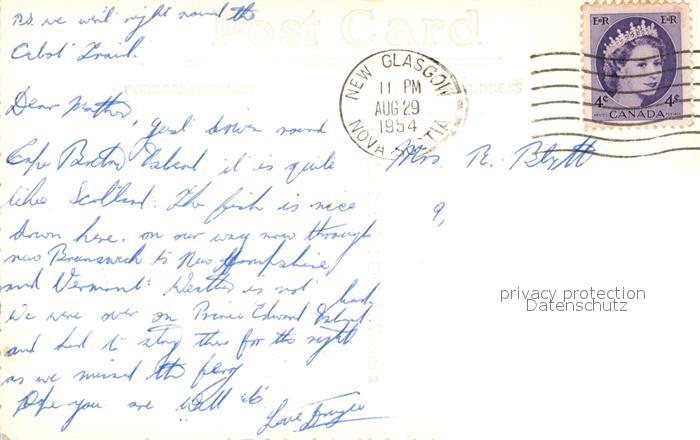 P.S. we went right round the
Cabot Trail.
Post Card
CORRESPONDENCE
ADDRESS
Dear Mother,
down round
Cape Breton Island it is quite
like Scotland. The fish is nice
down here. on our way now through
new Brunswick to New Hampshire
and Vermont. Weather is not bad,
We were over on Prince Edward Island.
and had to stay there for the night
as we missed the ferry
Hope you are Well
Love
NEW GLASGOW
11 PM
AUG 29
1954
NOVA SCOTIA
E R E R
4¢ 4¢
POSTES CANADA POSTAGE
Mrs. R. Blytt
9,
privacy protection
Datenschutz